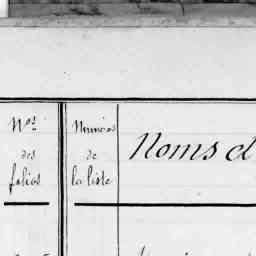 Nos
des
folios
Numéros
de
la liste
Noms d